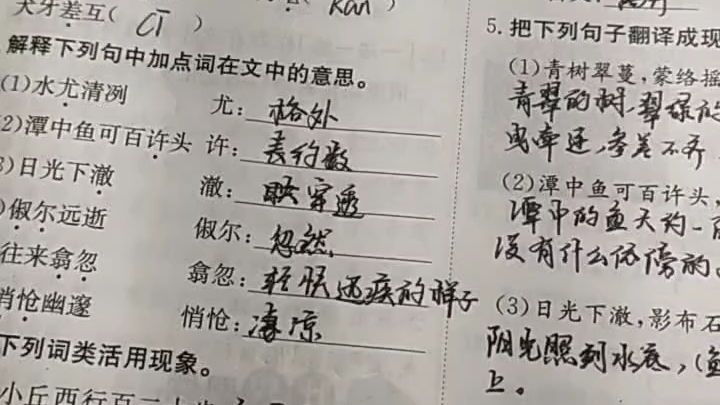 犬牙差互( cī )
解释下列句中加点词在文中的意思。
(1)水尤清冽 尤: 格外
2)潭中鱼可百许头 许: 表约数
3)日光下澈 澈: 穿透
)俶尔远逝 俶尔: 忽然
往来翕忽 翕忽: 轻快迅疾的样子
悄怆幽邃 悄怆: 凄凉
下列词类活用现象。
小丘西行百二十步
5. 把下列句子翻译成现
(1)青树翠蔓,蒙络摇
青翠的树,翠绿的
曳牵连,参差不齐
(2)潭中鱼可百许头,
潭中的鱼大约一百
没有什么依傍的
(3)日光下澈,影布石
阳光照到水底,(鱼
上。